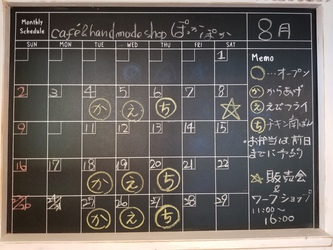 Monthly Schedule
café & handmade shop ぽっかぽか
8月
SUN MON TUE WED THU FRI SAT
1
2 3 4 5 6 7 8
か え ち
9 10 11 12 13 14 15
16 17 18 19 20 21 22
か え ち
23/30 24/31 25 26 27 28 29
か え ち
Memo
○…オープン
か からあげ
え えびフライ
ち チキン南ばん
・お弁当は前日
までに
☆ 販売会
&
ワークショップ
11:00～
16:00